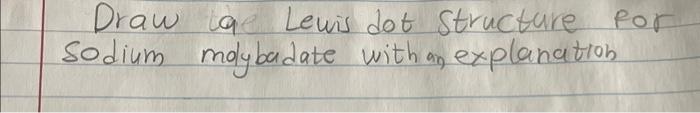 Draw Lewis dot structure for
sodium molybadate with an explanation